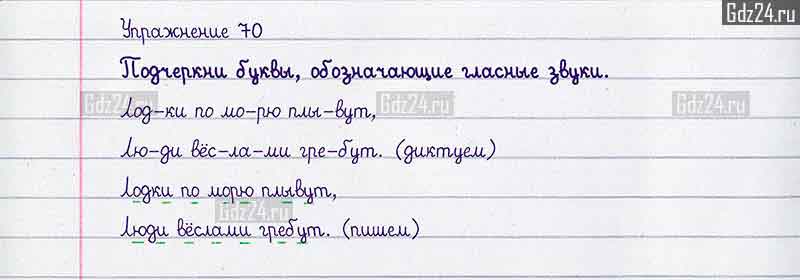 Gdz24.ru
Упражнение 70
Подчеркни буквы, обозначающие гласные звуки.
Gdz24.ru Gdz24.ru Gdz24.ru
Лод-ки по мо-рю плы-вут,
Лю-ди вёс-ла-ми гре-бут. (диктуем)
Лодки по морю плывут,
Gdz24.ru
Люди вёслами гребут. (пишем)